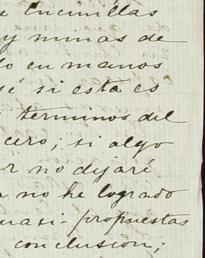 e Encinillas
y minas de
do en manos
sé si esta es
terminos del
cero; si algo
or no dejaré
a no he logrado
uasi-propuestas
conclusión;